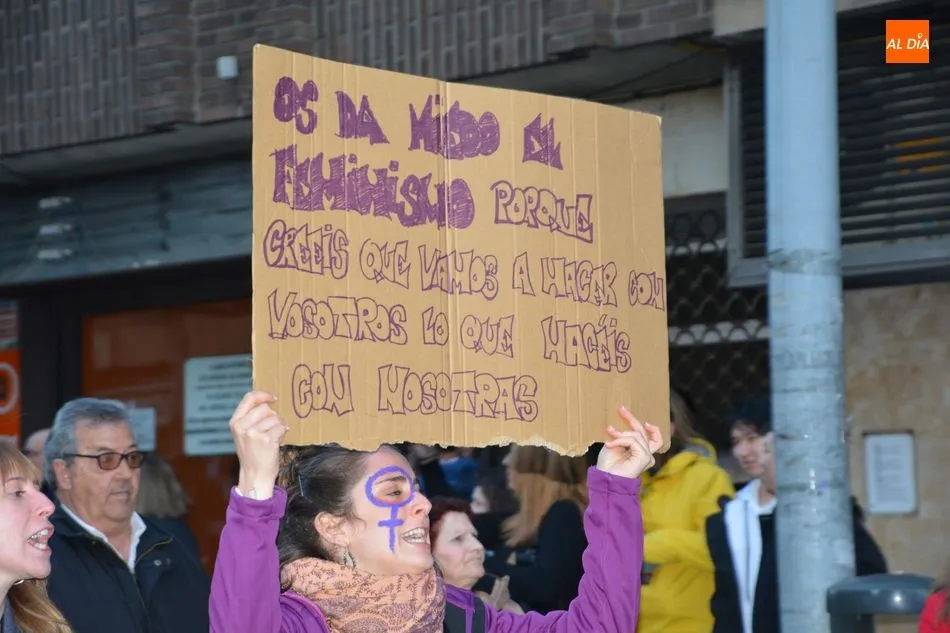 AL DÍA
OS DA MIEDO EL
FEMINISMO PORQUE
CREEIS QUE VAMOS A HACER CON
VOSOTROS LO QUE HACÉIS
CON NOSOTRAS